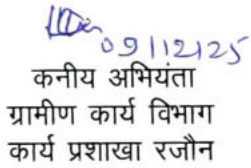 09/12/25
कनीय अभियंता
ग्रामीण कार्य विभाग
कार्य प्रशाखा रजौन